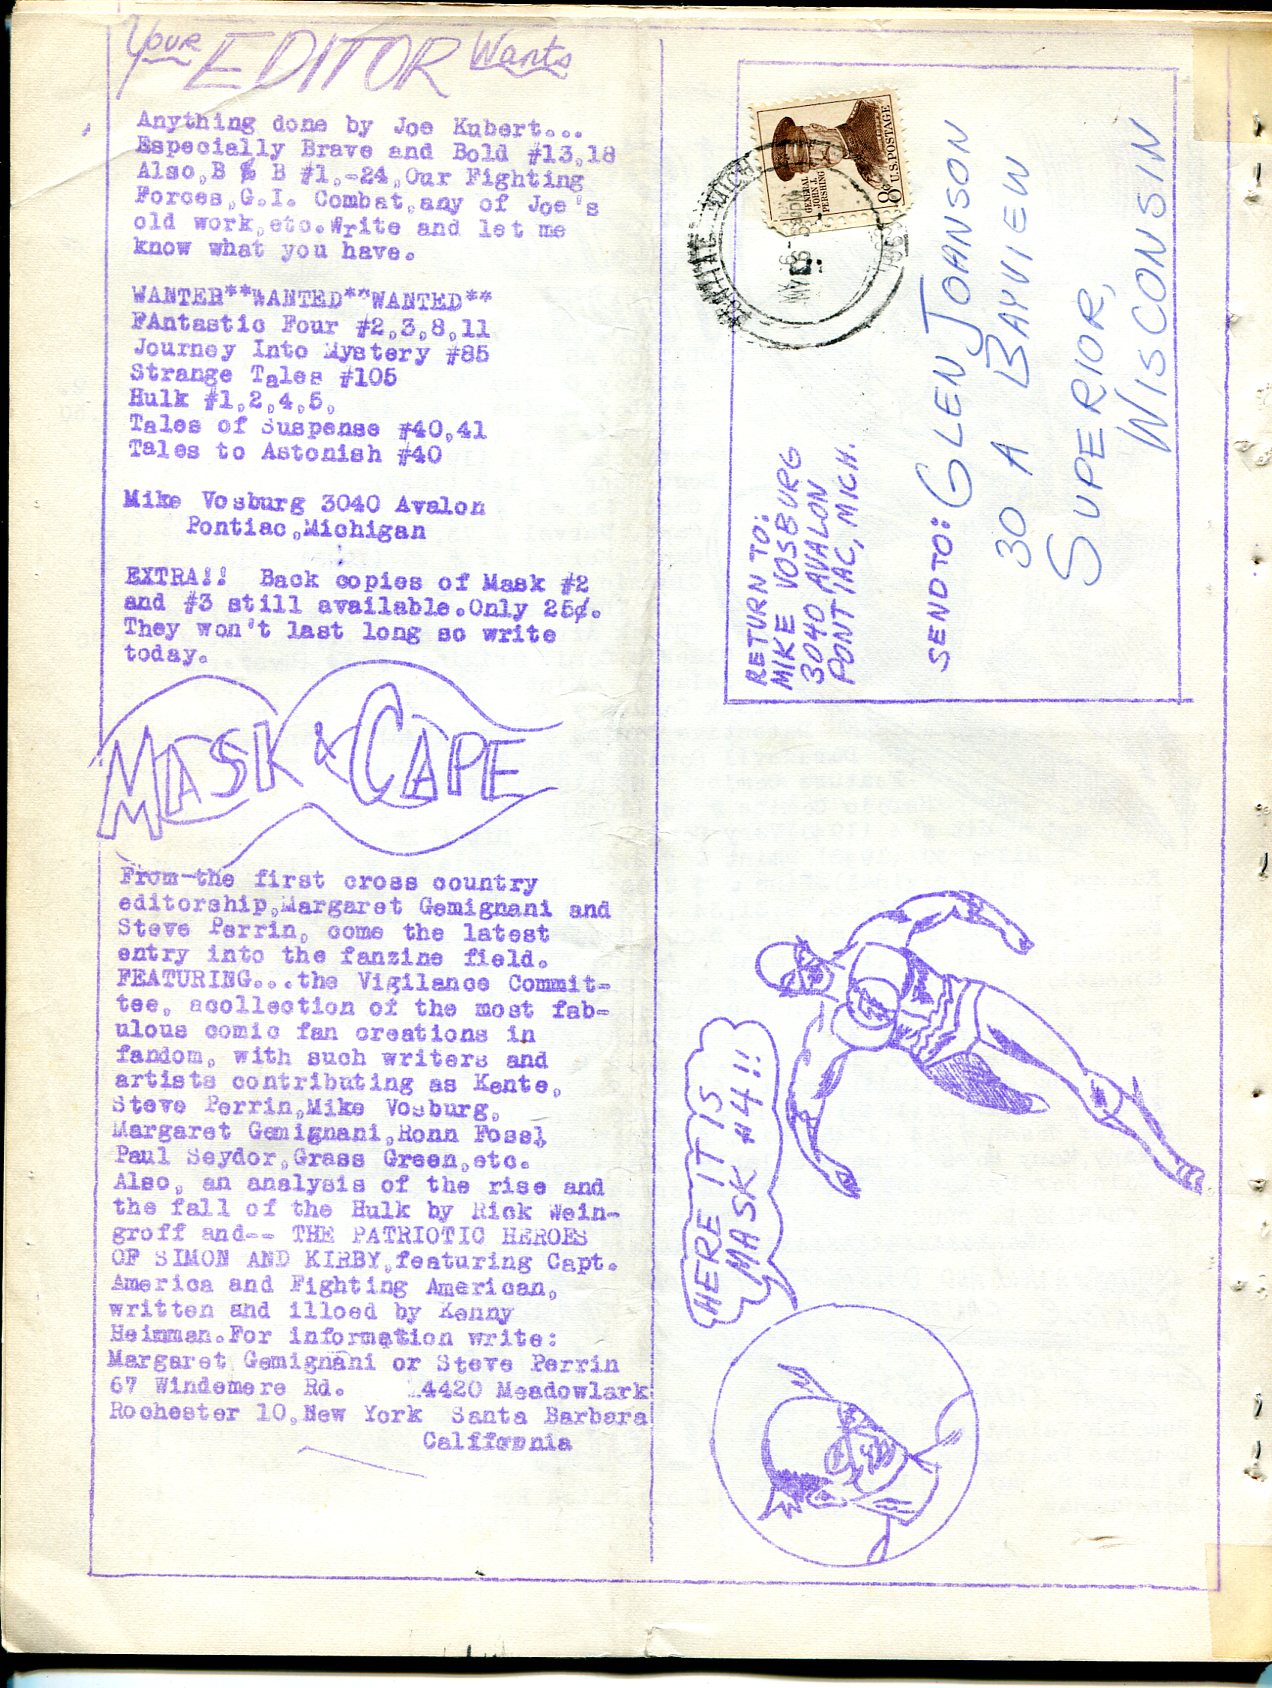 Your EDITOR Wants
Anything done by Joe Kubert...
Especially Brave and Bold #13,18
Also,B & B #1,-24,Our Fighting
Forces,G.I. Combat,any of Joe's
old work,etc.Write and let me
know what you have.
WANTER**WANTED**WANTED**
FAntastic Four #2,3,8,11
Journey Into Mystery #85
Strange Tales #105
Hulk #1,2,4,5,
Tales of Suspense #40,41
Tales to Astonish #40
Mike Vosburg 3040 Avalon
Pontiac,Michigan
EXTRA!! Back copies of Mask #2
and #3 still available.Only 25¢.
They won't last long so write
today.
MASK & CAPE
From-the first cross country
editorship,Margaret Gemignani and
Steve Perrin, come the latest
entry into the fanzine field.
FEATURING...the Vigilance Commit-
tee, acollection of the most fab-
ulous comic fan creations in
fandom, with such writers and
artists contributing as Kente,
Steve Perrin,Mike Vosburg,
Margaret Gemignani,Ronn Foss,
Paul Seydor,Grass Green,etc.
Also, an analysis of the rise and
the fall of the Hulk by Rick Wein-
groff and-- THE PATRIOTIC HEROES
OF SIMON AND KIRBY,featuring Capt.
America and Fighting American,
written and illoed by Kenny
Heinman.For information write:
Margaret Gemignani or Steve Perrin
67 Windemere Rd. 4420 Meadowlark
Rochester 10,New York Santa Barbara
California
RETURN TO:
MIKE VOSBURG
3040 AVALON
PONTIAC, MICH.
GENERAL
JOHN J.
PERSHING
8¢
U.S. POSTAGE
PONTIAC MICH
SEND TO: GLEN JOHNSON
30 A BAYVIEW
SUPERIOR,
WISCONSIN
HERE IT IS
MASK #4!!